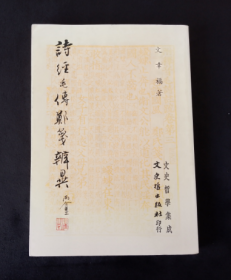 文幸福著
詩經毛傳鄭箋辨異
文史哲學集成
文史哲出版社印行